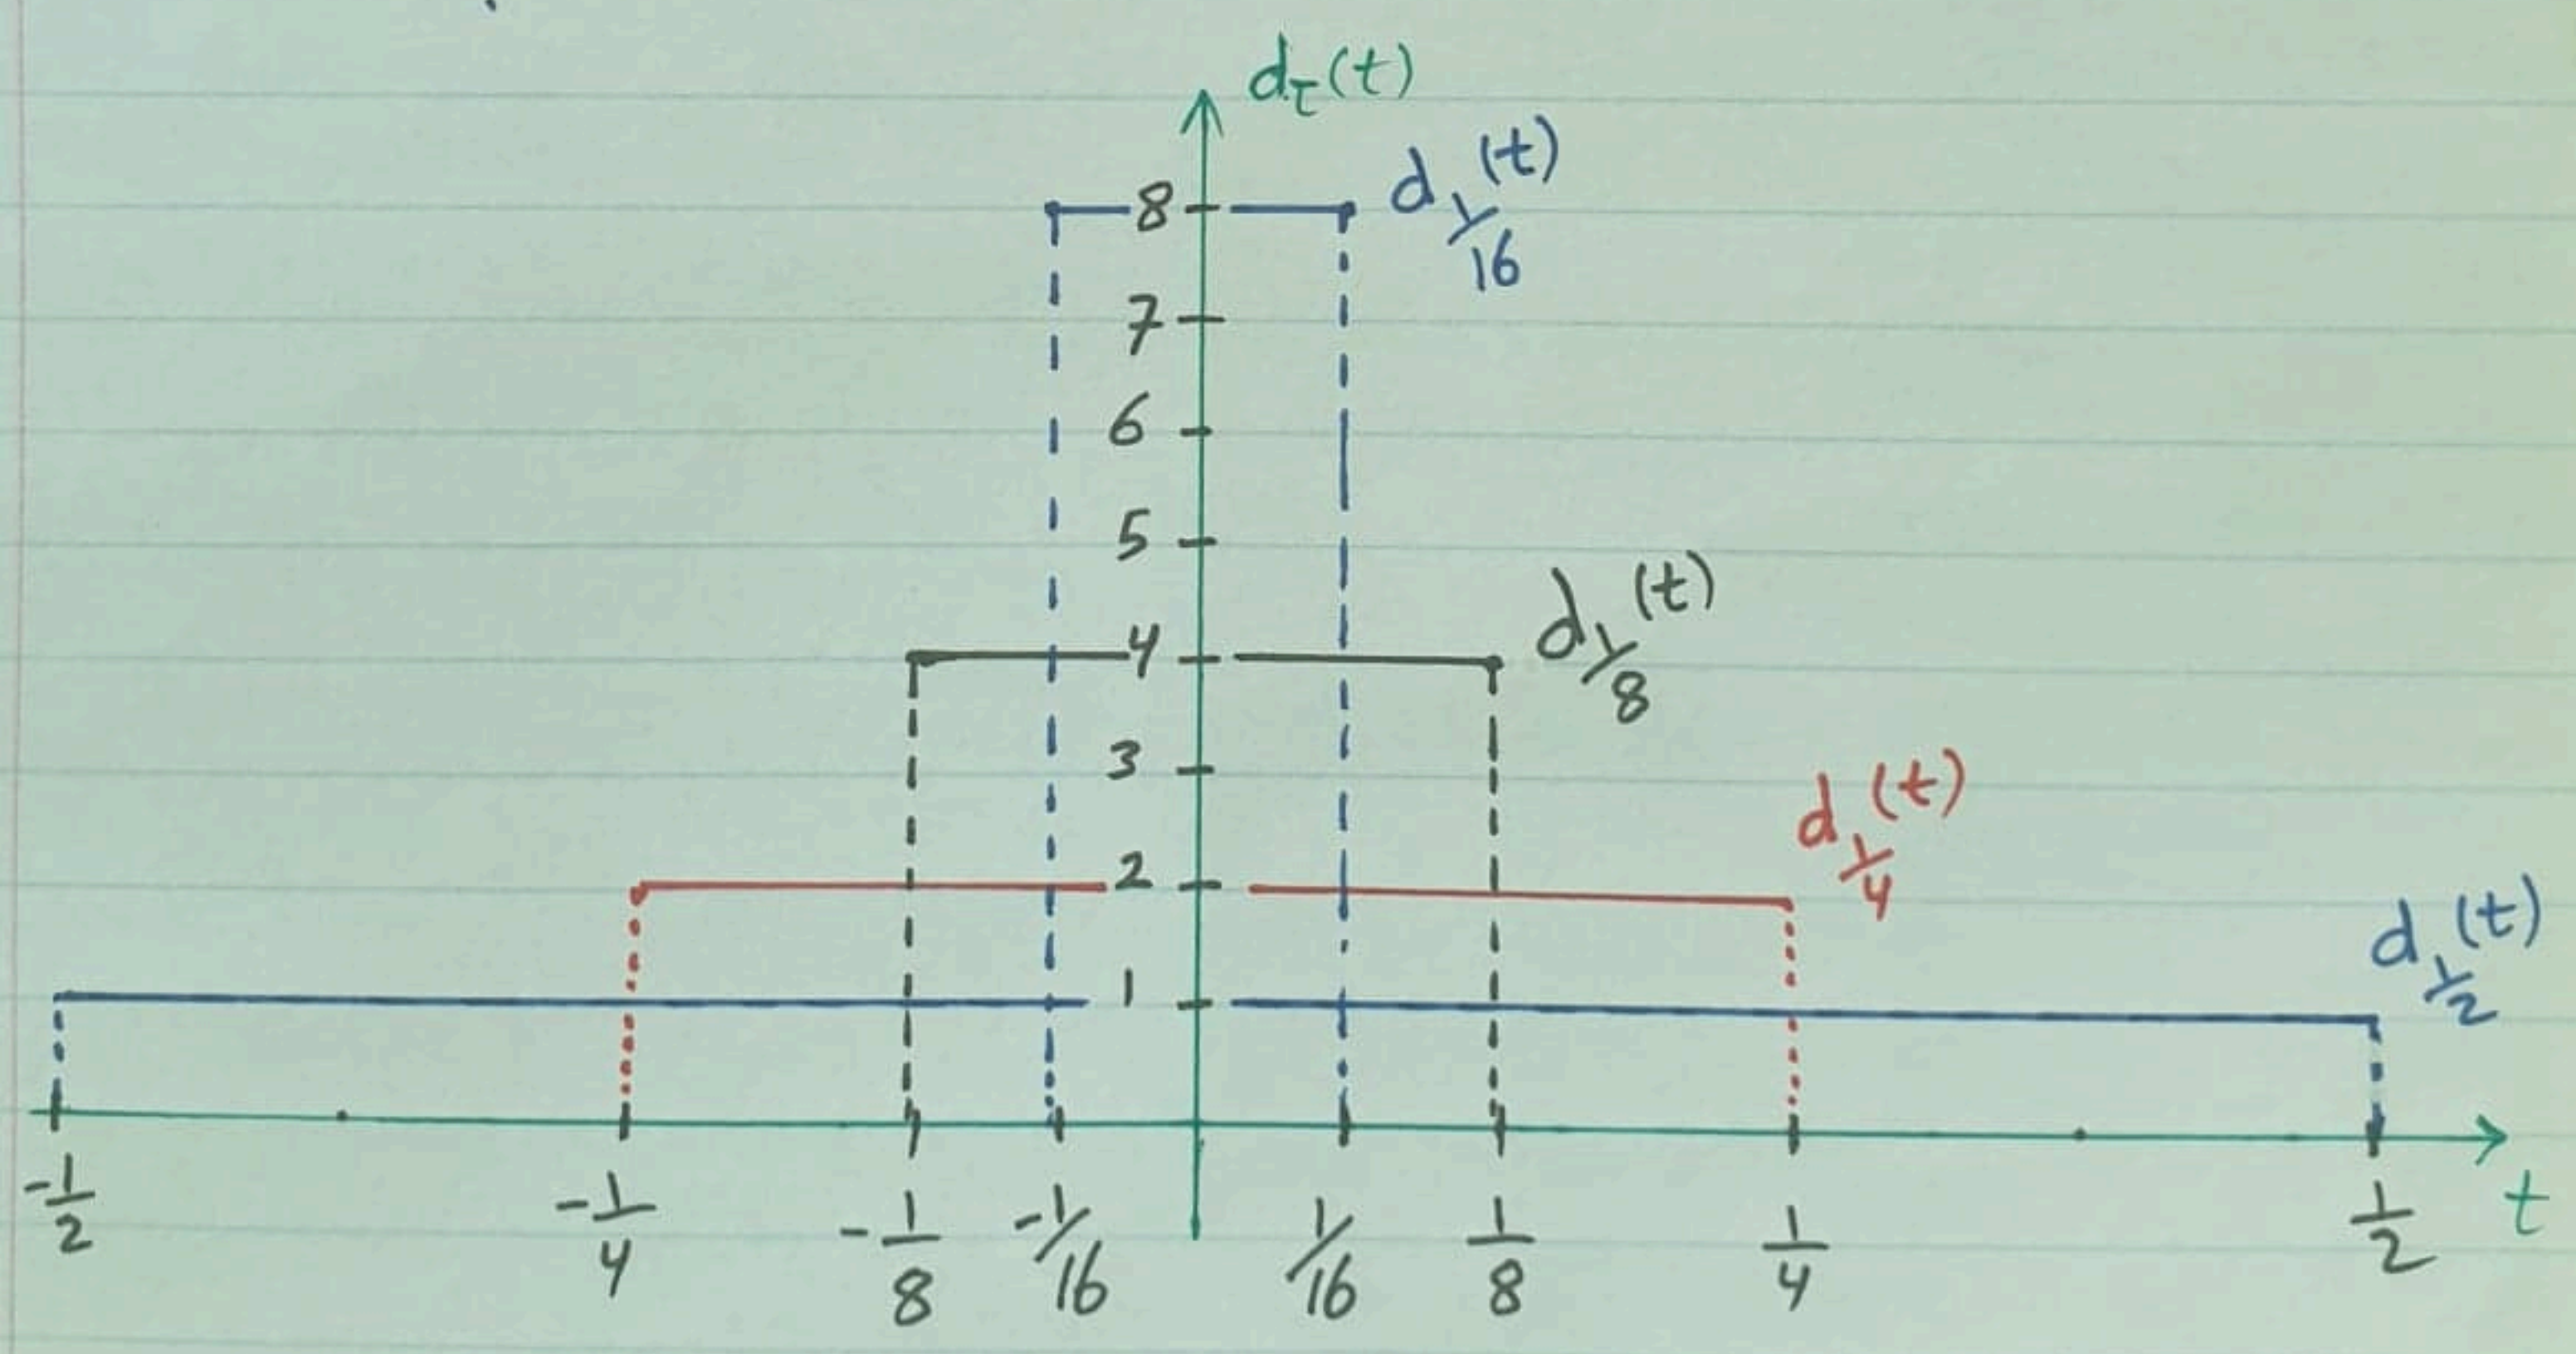 dτ(t)
d1/16(t)
8
7
6
5
d1/8(t)
4
3
d1/4(t)
2
d1/2(t)
1
-1/2 -1/4 -1/8 -1/16 1/16 1/8 1/4 1/2 t